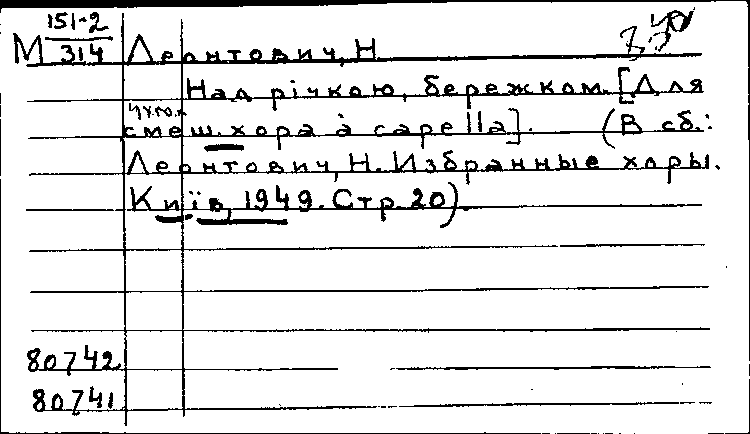 151-2
М 314 Леонтович, Н.
Над річкою, бережком. [Для
смеш. хора à capella]. (В сб.:
Леонтович, Н. Избранные хоры.
Київ, 1949. Стр. 20).
80742
80741